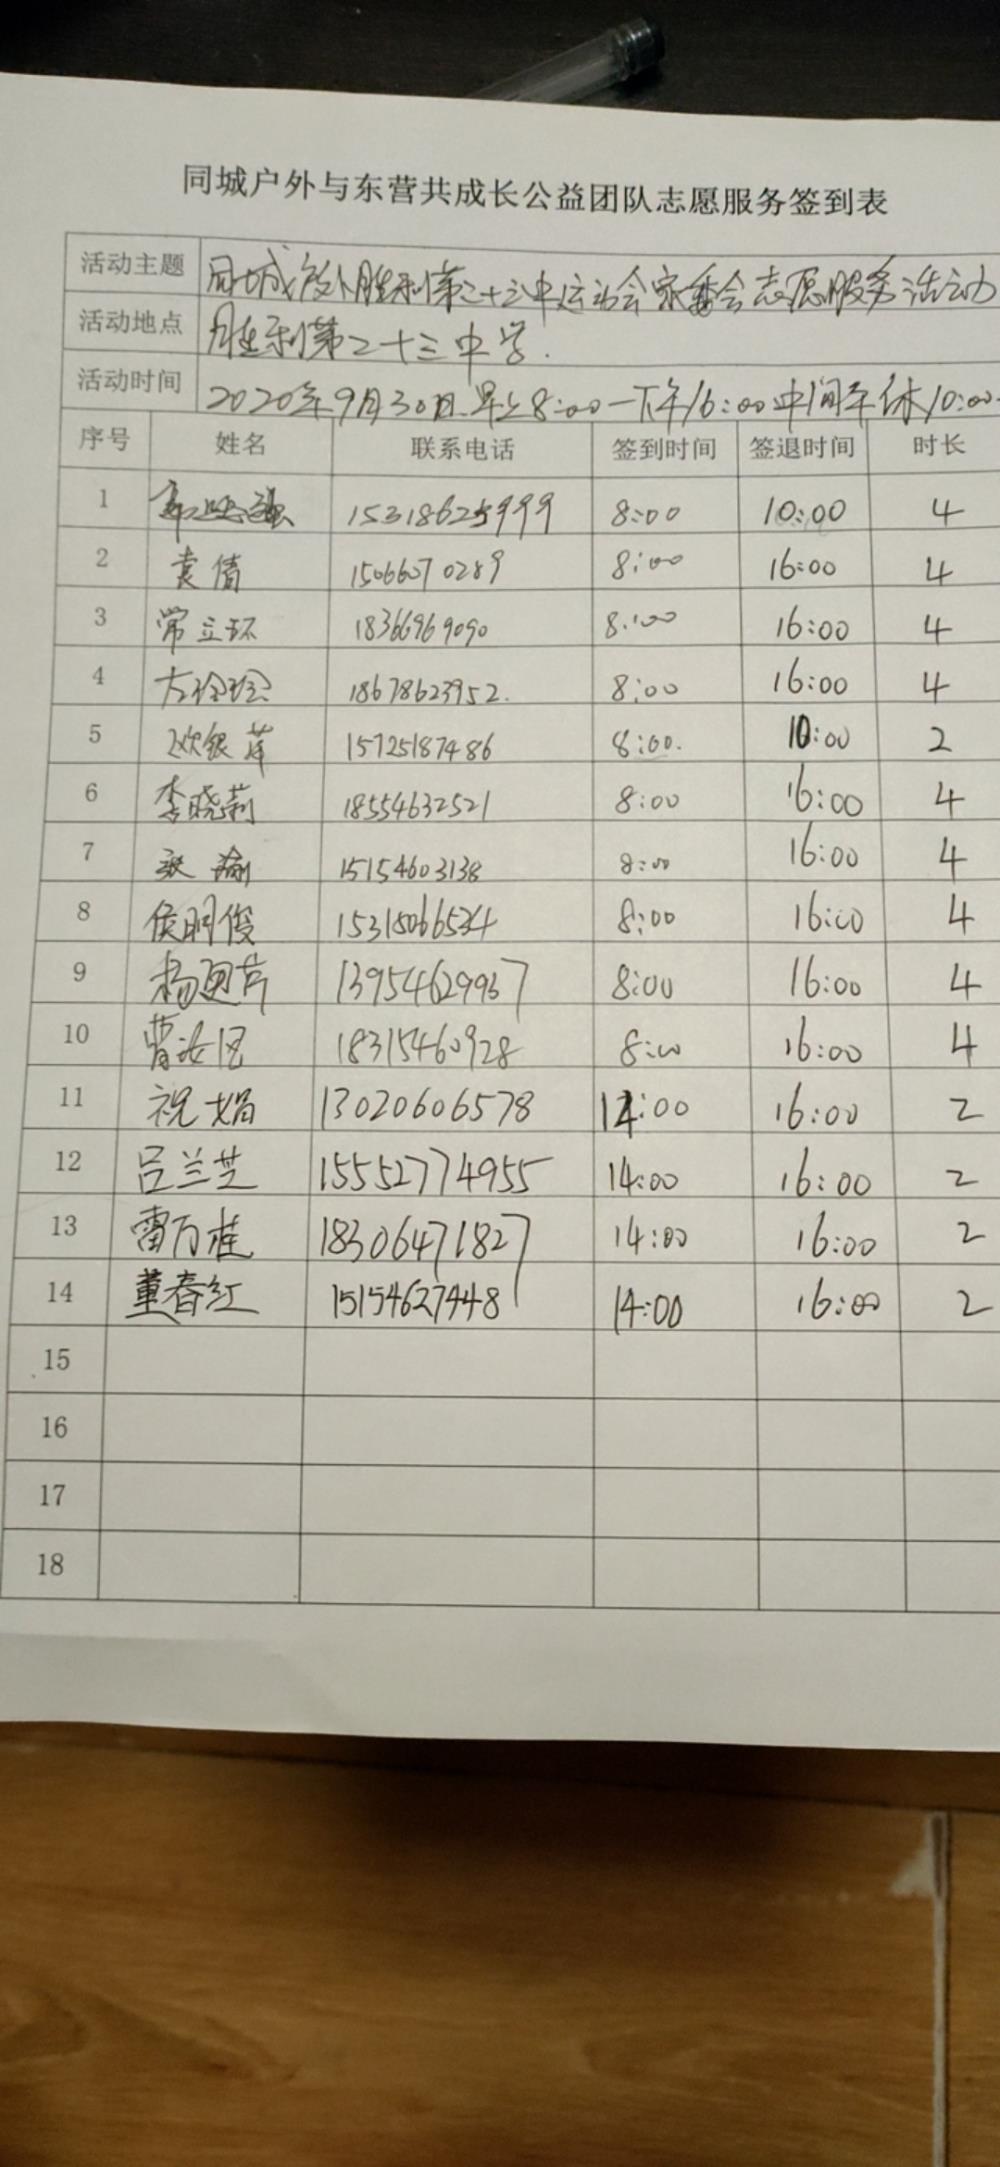 同城户外与东营共成长公益团队志愿服务签到表
活动主题 同城户外胜利第二十三中运动会家委会志愿服务活动
活动地点 胜利第二十三中学.
活动时间 2020年9月30日.早上8:00—下午16:00中间午休10:00-
序号 姓名 联系电话 签到时间 签退时间 时长
1 15318625999 8:00 10:00 4
2 袁倩 15066070289 8:00 16:00 4
3 常立环 18366969090 8:00 16:00 4
4 18678623952. 8:00 16:00 4
5 欧银萍 15725187486 8:00. 10:00 2
6 李晓莉 18554632521 8:00 16:00 4
7 张瑜 15154603138 8:00 16:00 4
8 侯明俊 15315066534 8:00 16:00 4
9 杨更芹 13954629937 8:00 16:00 4
10 18315460928 8:00 16:00 4
11 祝娟 13020606578 14:00 16:00 2
12 吕兰芝 15552774955 14:00 16:00 2
13 雷万桂 18306471827 14:00 16:00 2
14 董春红 15154627448 14:00 16:00 2
15
16
17
18